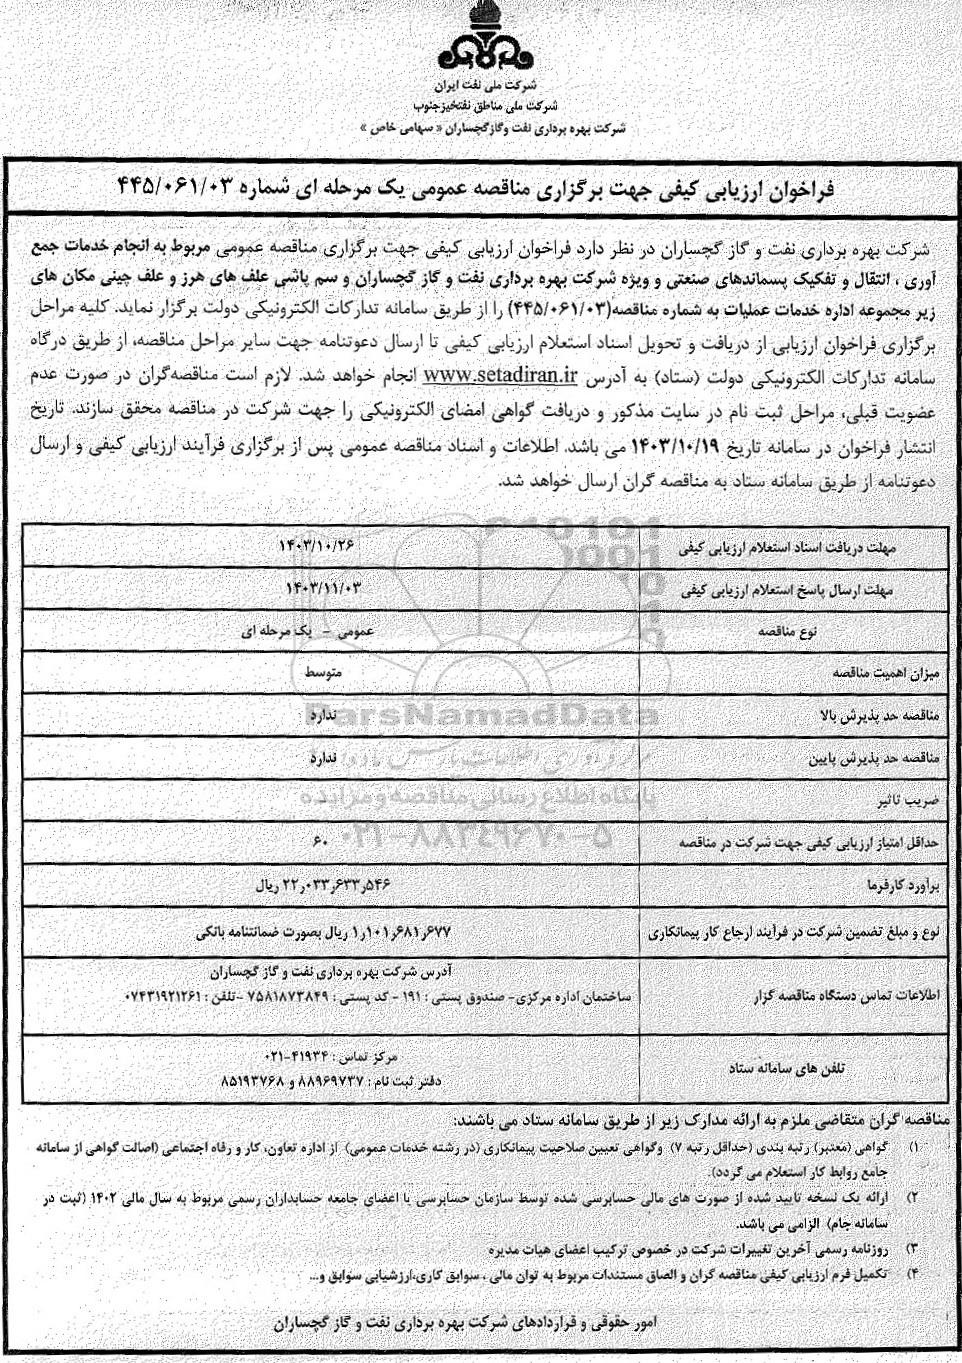 شرکت ملی نفت ایران
شرکت ملی مناطق نفتخیز جنوب
شرکت بهره برداری نفت وگاز گچساران « سهامی خاص »
فراخوان ارزیابی کیفی جهت برگزاری مناقصه عمومی یک مرحله ای شماره ۴۴۵/۰۶۱/۰۳
شرکت بهره برداری نفت و گاز گچساران در نظر دارد فراخوان ارزیابی کیفی جهت برگزاری مناقصه عمومی مربوط به انجام خدمات جمع
آوری ، انتقال و تفکیک پسماندهای صنعتی و ویژه شرکت بهره برداری نفت و گاز گچساران و سم پاشی علف های هرز و علف چینی مکان های
زیر مجموعه اداره خدمات عملیات به شماره مناقصه(۴۴۵/۰۶۱/۰۳) را از طریق سامانه تدارکات الکترونیکی دولت برگزار نماید. کلیه مراحل
برگزاری فراخوان ارزیابی از دریافت و تحویل اسناد استعلام ارزیابی کیفی تا ارسال دعوتنامه جهت سایر مراحل مناقصه، از طریق درگاه
سامانه تدارکات الکترونیکی دولت (ستاد) به آدرس www.setadiran.ir انجام خواهد شد. لازم است مناقصه‌گران در صورت عدم
عضویت قبلی، مراحل ثبت نام در سایت مذکور و دریافت گواهی امضای الکترونیکی را جهت شرکت در مناقصه محقق سازند. تاریخ
انتشار فراخوان در سامانه تاریخ ۱۴۰۳/۱۰/۱۹ می باشد. اطلاعات و اسناد مناقصه عمومی پس از برگزاری فرآیند ارزیابی کیفی و ارسال
دعوتنامه از طریق سامانه ستاد به مناقصه گران ارسال خواهد شد.
مهلت دریافت اسناد استعلام ارزیابی کیفی ۱۴۰۳/۱۰/۲۶
مهلت ارسال پاسخ استعلام ارزیابی کیفی ۱۴۰۳/۱۱/۰۳
نوع مناقصه عمومی - یک مرحله ای
میزان اهمیت مناقصه متوسط
مناقصه حد پذیرش بالا ندارد
ParsNamadData
مناقصه حد پذیرش پایین ندارد
ضریب تاثیر
پایگاه اطلاع رسانی مناقصه و مزایده
حداقل امتیاز ارزیابی کیفی جهت شرکت در مناقصه ۶۰
۰۲۱-۸۸۳۴۹۶۷۰-۵
برآورد کارفرما ۲۲٫۰۳۳٫۶۳۳٫۵۴۶ ریال
نوع و مبلغ تضمین شرکت در فرآیند ارجاع کار پیمانکاری ۱٫۱۰۱٫۶۸۱٫۶۷۷ ریال بصورت ضمانتنامه بانکی
آدرس شرکت بهره برداری نفت و گاز گچساران
اطلاعات تماس دستگاه مناقصه گزار ساختمان اداره مرکزی- صندوق پستی : ۱۹۱ - کد پستی : ۷۵۸۱۸۷۳۸۴۹ -تلفن : ۰۷۴۳۱۹۲۱۲۶۱
تلفن های سامانه ستاد مرکز تماس : ۴۱۹۳۴-۰۲۱
دفتر ثبت نام : ۸۸۹۶۹۷۳۷ و ۸۵۱۹۳۷۶۸
مناقصه گران متقاضی ملزم به ارائه مدارک زیر از طریق سامانه ستاد می باشند:
۱) گواهی (معتبر) رتبه بندی (حداقل رتبه ۷) وگواهی تعیین صلاحیت پیمانکاری (در رشته خدمات عمومی) از اداره تعاون، کار و رفاه اجتماعی (اصالت گواهی از سامانه
جامع روابط کار استعلام می گردد).
۲) ارائه یک نسخه تایید شده از صورت های مالی حسابرسی شده توسط سازمان حسابرسی یا اعضای جامعه حسابداران رسمی مربوط به سال مالی ۱۴۰۲ (ثبت در
سامانه جام) الزامی می باشد.
۳) روزنامه رسمی آخرین تغییرات شرکت در خصوص ترکیب اعضای هیات مدیره
۴) تکمیل فرم ارزیابی کیفی مناقصه گران و الصاق مستندات مربوط به توان مالی ، سوابق کاری،ارزشیابی سوابق و...
امور حقوقی و قراردادهای شرکت بهره برداری نفت و گاز گچساران